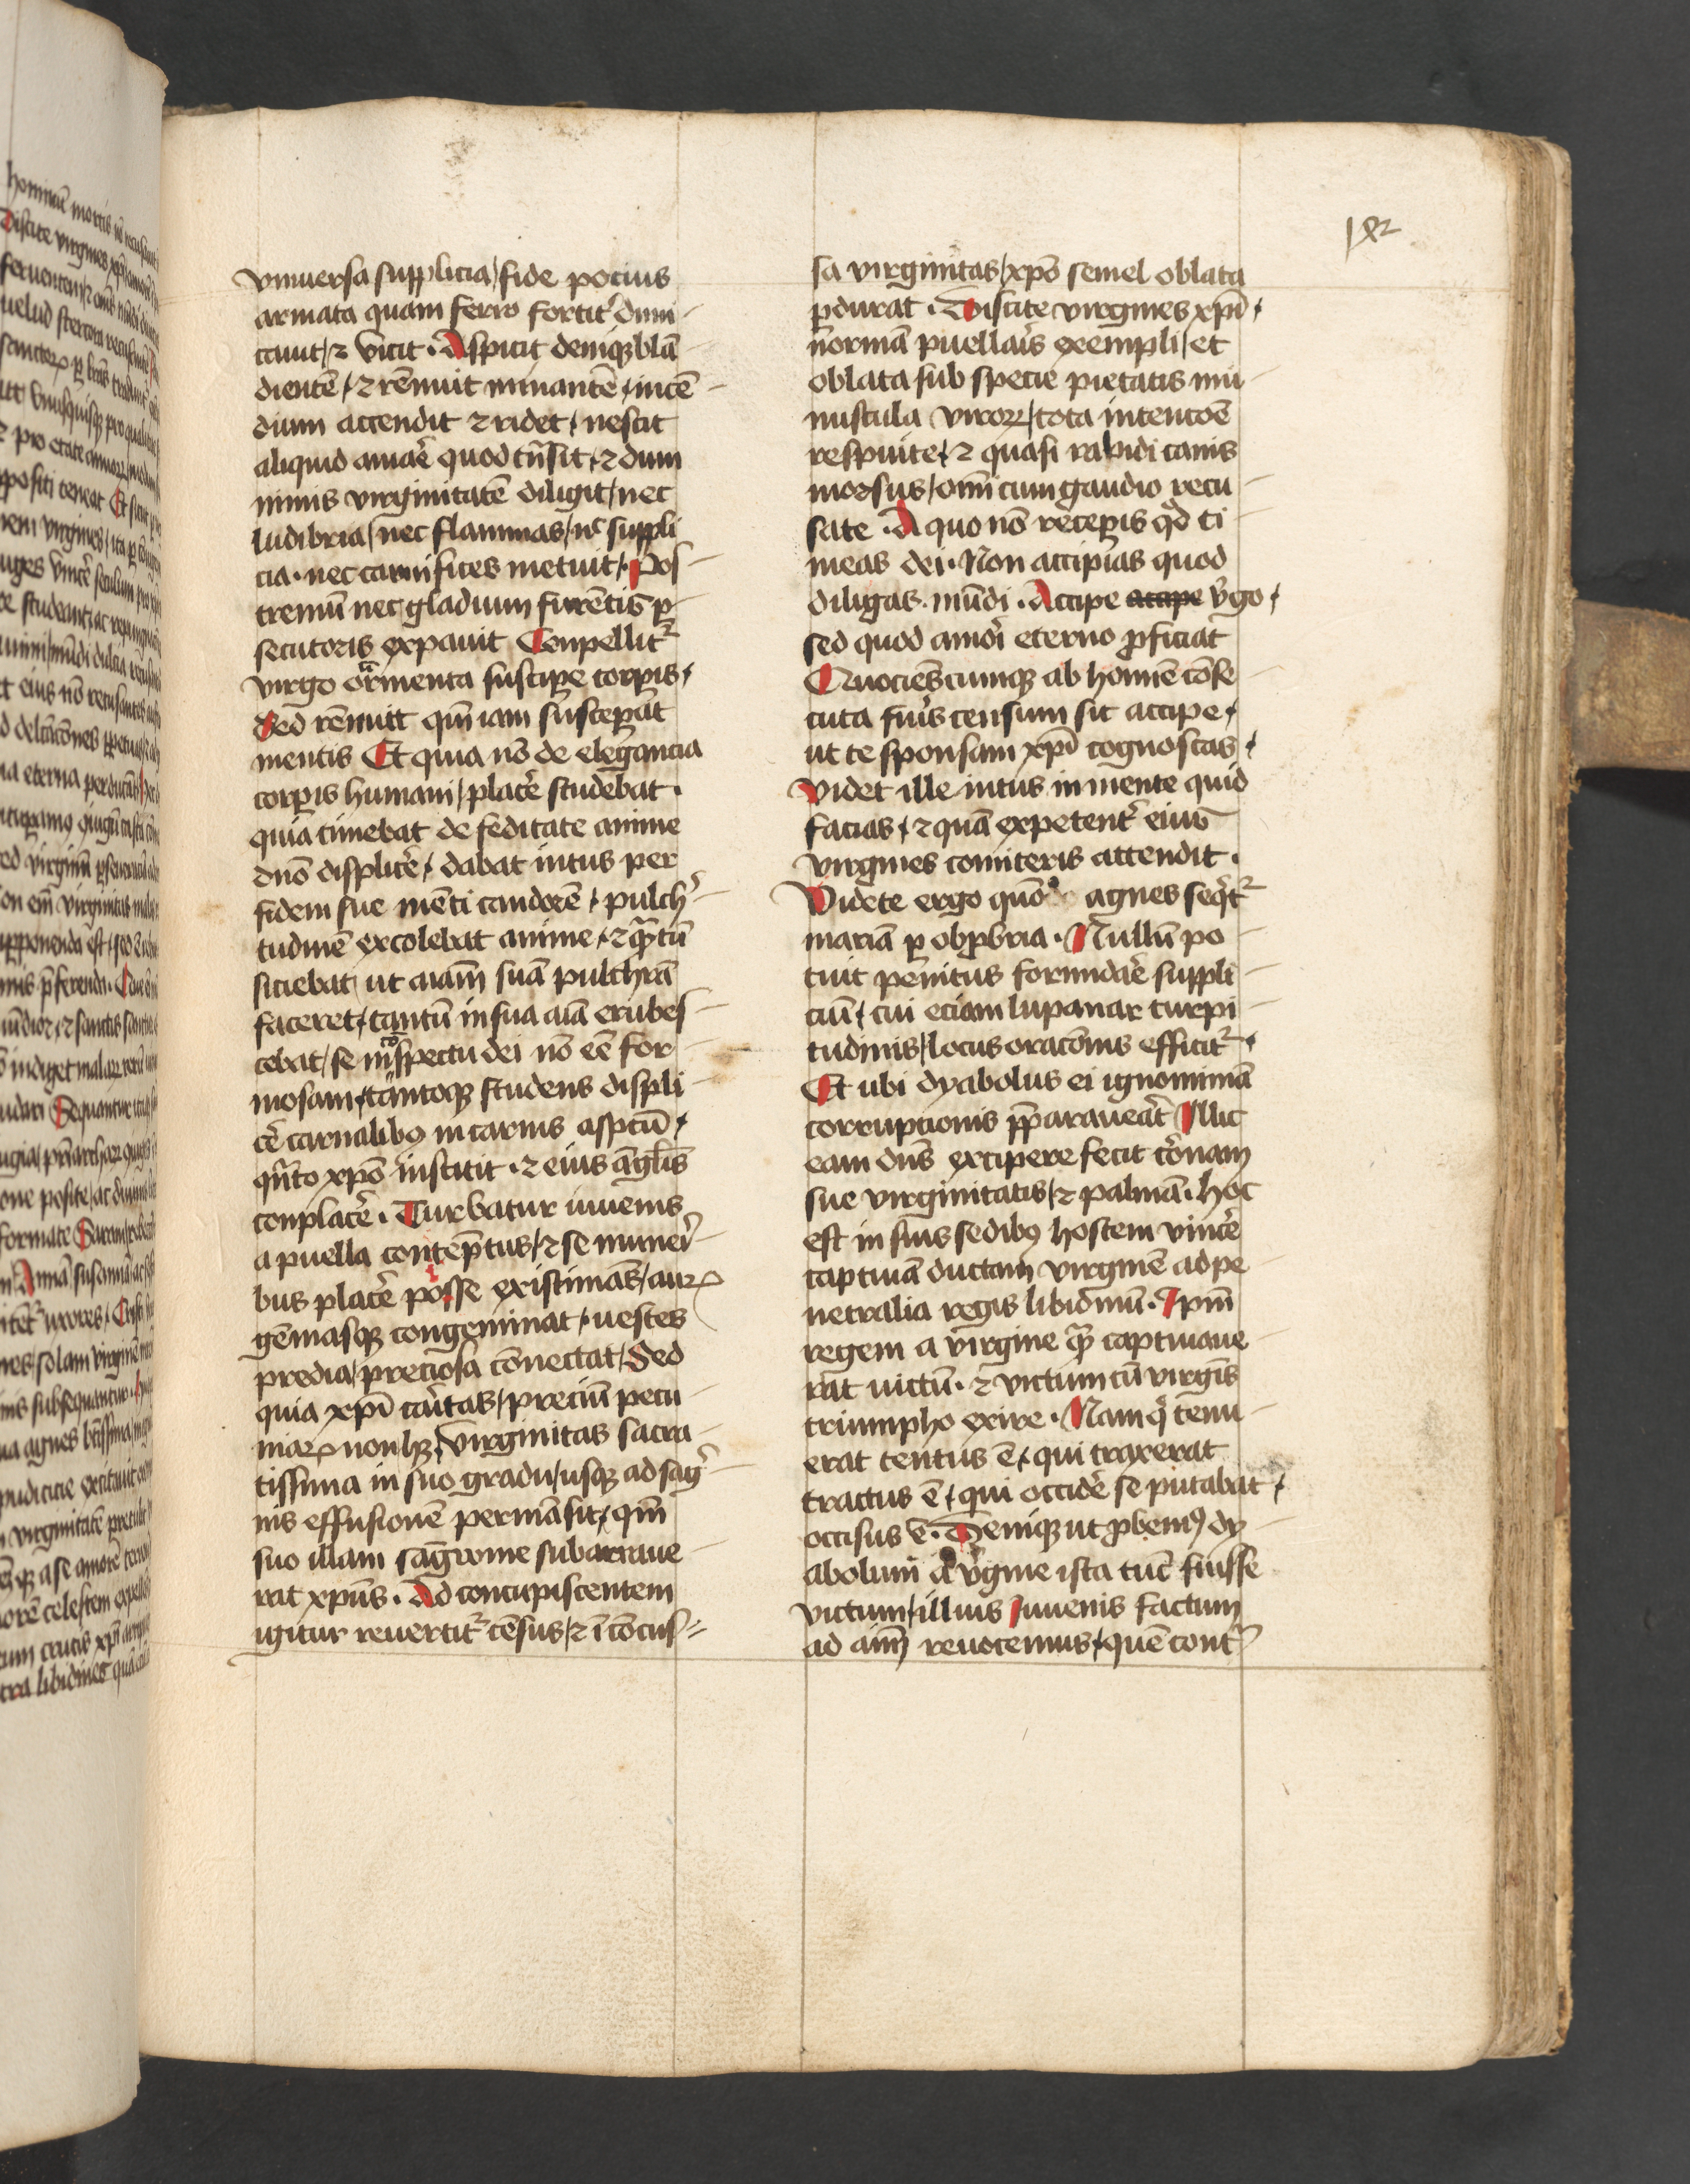 vniuersa supplicia / fide pocius
armata quam ferro fortit̾ dimi-
cauit / ⁊ vicit · Aspicit deniqꝫ blā
dientē / ⁊ rēnuit minantē / incē-
dium accendit ⁊ ridet / nescit
aliquid amar̄e quod tn̄sit / ⁊ dum
nimis virginitatē diligit / nec
ludibria / nec flammas / nͨ suppli
cia · nec carnifices metuit / Pos-
tremū nec gladium furētis ꝑ-
secutoris expauit Conpellit᷑
virgo tormenta suscipe corꝑis /
Sed rēnuit qm̄ iam susceꝑat
mentis Et quia nō de elegancia
corꝑis humani / placer̄e studebat ·
quia timebat de feditate anime
dn̄o displicer̄e / dabat intus per
fidem sue mēti candorē / pulch̾-
tudinē excolebat anime / ⁊ qͣntū
siciebat ut aīam suā pulchrā
faceret / tantū in sua aīa erubes-
cebat / se in ꝯspectu dei nō eē for-
mosam / tantoqꝫ studens displi-
cēr̄ carnalibꝫ in carnis aspectū /
qn̄to xp̄o institit · ⁊ eius angl̄is
conplacer̄e · Turbatur iuuenis
a puella contēptus / ⁊ se muneri-
bus placer̄e posse existimās / auꝝ
gēmasqꝫ congeminat / uestes
predia / preciosa cōnectat / Sed
quia xp̄i caritas / preciū pecu-
niaꝝ non hꝫ / virginitas sacra-
tissima in suo gradu / usqꝫ ad sagͥ-
nis effusionē permāsit / qm̄
suo illam sāgwine subarraue-
rat xp̄us · Ad concupiscentem
igitur reuertit᷑ cēsus / ⁊ ī cōcus=
sa virginitas / xp̄o semel oblata
ꝑdurat · Discite virgines xp̄i /
normā puellaris exempli / et
oblata sub specie pietatis mu-
nuscula viroꝝ / tota intencōe
respuite / ⁊ quasi rabidi canis
morsus / om̄i cum gaudio recu-
sate · A quo nō receꝑis qd̄ ti-
meas dei · Non accipias quod
diligas mūdi · Accipe accipe v̾go /
sed quod amori eterno ꝓficiat
Quociēscumqꝫ ab homīe cōse-
cuta fu̾is censum sit accipe /
ut te sponsam xp̄i cognoscas /
Videt ille intus in mente quid
facias / ⁊ quā expetent̾ eius
virgines comiteris attendit ·
Videte ergo quō agnes seqͥt᷑
mariā ꝑ obꝓbria · Nullū po-
tuit penitus formidar̄e suppli-
ciū / cui eciam lupanar turpi-
tudinis / locus oracōnis efficit᷑ /
Et ubi dyabolus ei ignominiā
corrupcionis p̄parauerat Illic
eam dn̄s excipere fecit coronam
sue virginitatis / ⁊ palmā · hoc
est in suis sedibꝫ hostem vincer̄e
captiuā ductam virginē ad pe-
netralia regis libidinū · Ip̄m
regem a virgine qͣm captiuaue-
rat uictū · ⁊ victum cū virgīs
triumpho exire · Nam qͥ tenu-
erat tentus ē / qui traxerat
tractus ē / qui occider̄e se putabat /
occisus ē · Deniqꝫ ut ꝓbemꝰ dy-
abolum a v̾gine ista tūc fuisse
victum / illius Iuuenis factum
ad aīm reuocemus / quē contͥ